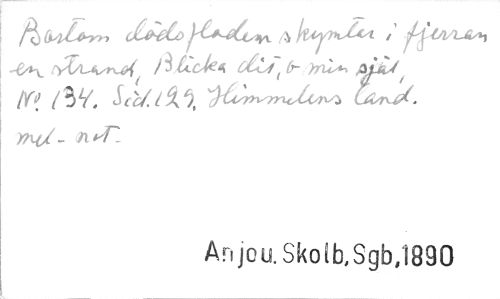 Bortom dödsfloden skymtar i fjerran
en strand, Blicka dit, o min själ,
No. 134. Sid. 129. Himmelens land.
mel- not-
Anjou. Skolb, Sgb, 1890